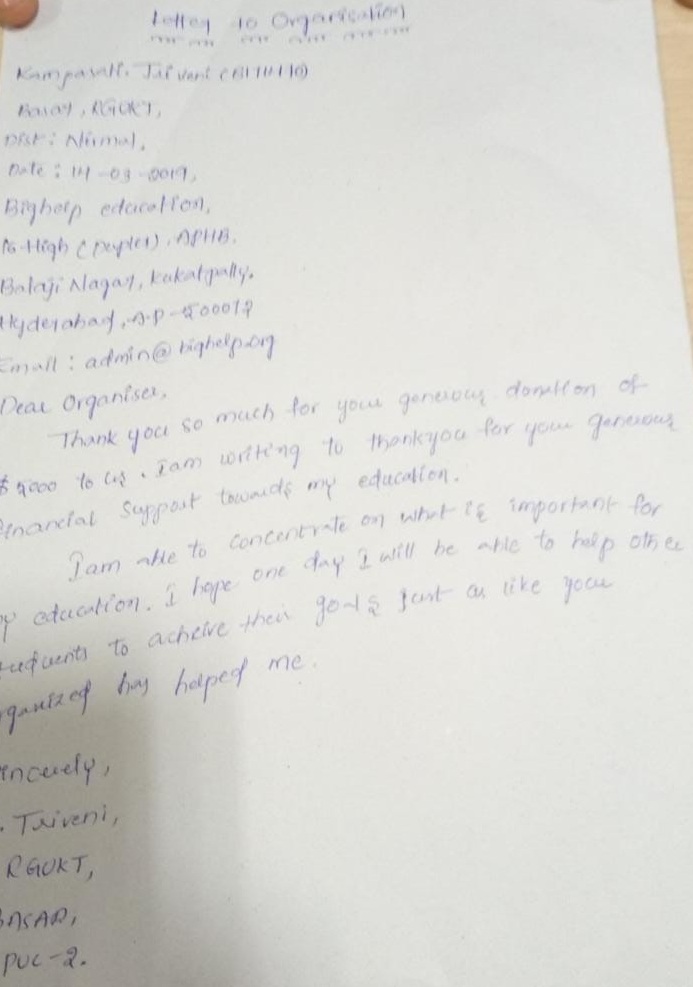 Letter to Organisation
Kampavati. Triveni
Basar, RGUKT,
Dist: Nirmal,
Date: 14-03-2019,
Bighelp education,
High (peoples), APHB,
Balaji Nagar, kukatpally.
Hyderabad, A.P-500017
Email: admin@bighelp.org
Dear Organiser,
Thank you so much for your generious donation of
to us. Iam writing to thankyou for your generious
inancial Support towards my education.
Iam able to concentrate on what is important for
y education. I hope one day I will be able to help other
tudents to acheive their goals just as like your
rganized has helped me.
incerely,
. Triveni,
RGUKT,
BASAR,
PUC-2.